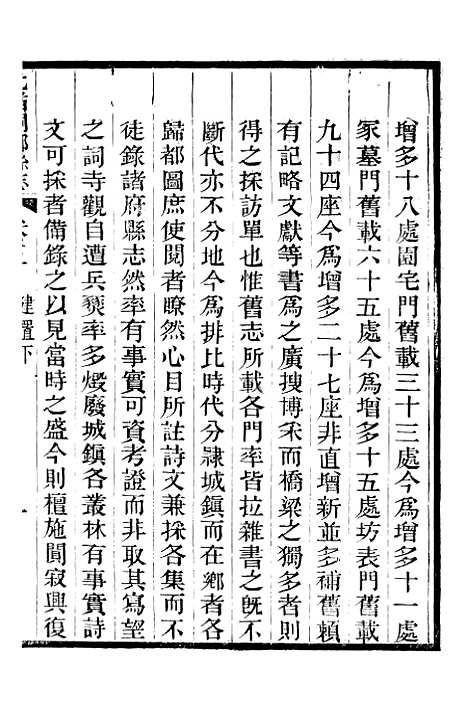 增多十八處園宅門舊載三十三處今爲增多十一處
冢墓門舊載六十五處今爲增多十五處坊表門舊載
九十四座今爲增多二十七座非直增新並多補舊賴
有記略文獻等書爲之廣搜博采而橋梁之獨多者則
得之採訪單也惟舊志所載各門率皆拉雜書之旣不
斷代亦不分地今爲排比時代分隷城鎭而在鄉者各
歸都圖庶使閱者瞭然心目所註詩文兼採各集而不
徒錄諸府縣志然率有事實可資考證而非取其寫望
之詞寺觀自遭兵燹率多燬廢城鎭各叢林有事實詩
文可採者備錄之以見當時之盛今則檀施闃寂興復
建置下
一